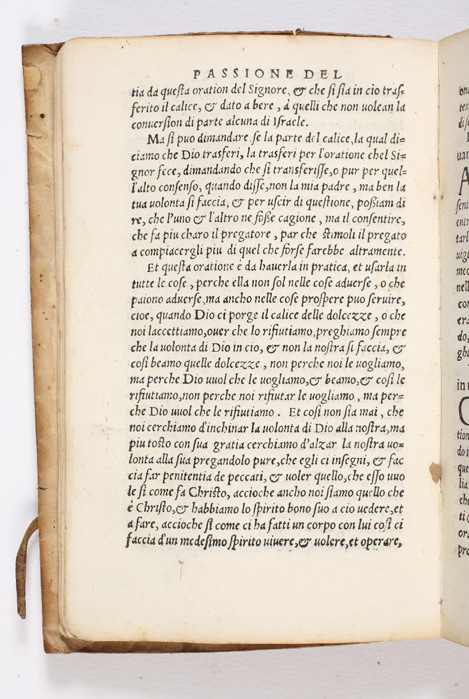 PASSIONE DEL
tia da questa oration del Signore, & che si sia in cio tras=
ferito il calice, & dato a bere, à quelli che non volean la
conuersion di parte alcuna di Israele.
Ma si puo dimandare se la parte del calice, la qual di=
ciamo che Dio trasferi, la trasferi per l'oratione chel Si=
gnor fece, dimandando che si transferisse, o pur per quel=
l'alto consenso, quando disse, non la mia padre, ma ben la
tua volonta si faccia, & per uscir di questione, possiam di
re, che l'uno & l'altro ne fosse cagione, ma il consentire,
che fa piu charo il pregatore, par che stimoli il pregato
a compiacergli piu di quel che forse farebbe altramente.
Et questa oratione è da hauerla in pratica, et usarla in
tutte le cose, perche ella non sol nelle cose aduerse, o che
paiono aduerse, ma ancho nelle cose prospere puo seruire,
cioe, quando Dio ci porge il calice delle dolcezze, o che
noi laccettiamo, ouer che lo rifiutiamo, preghiamo sempre
che la volonta di Dio in cio, & non la nostra si faccia, &
cosi beamo quelle dolcezze, non perche noi le uogliamo,
ma perche Dio uuol che le uogliamo, & beamo, & cosi le
rifiutiamo, non perche noi rifiutar le uogliamo, ma per=
che Dio uuol che le rifiutiamo. Et cosi non sia mai, che
noi cerchiamo d'inchinar la uolonta di Dio alla nostra, ma
piu tosto con sua gratia cerchiamo d'alzar la nostra uo=
lonta alla sua pregandolo pure, che egli ci insegni, & fac
cia far penitentia de peccati, & uoler quello, che esso uuo
le si come fa Christo, accioche ancho noi siamo quello che
è Christo, & habbiamo lo spirito bono suo a cio uedere, et
a fare, accioche si come ci ha fatti un corpo con lui cosi ci
faccia d'un medesimo spirito uiuere, & uolere, et operare,